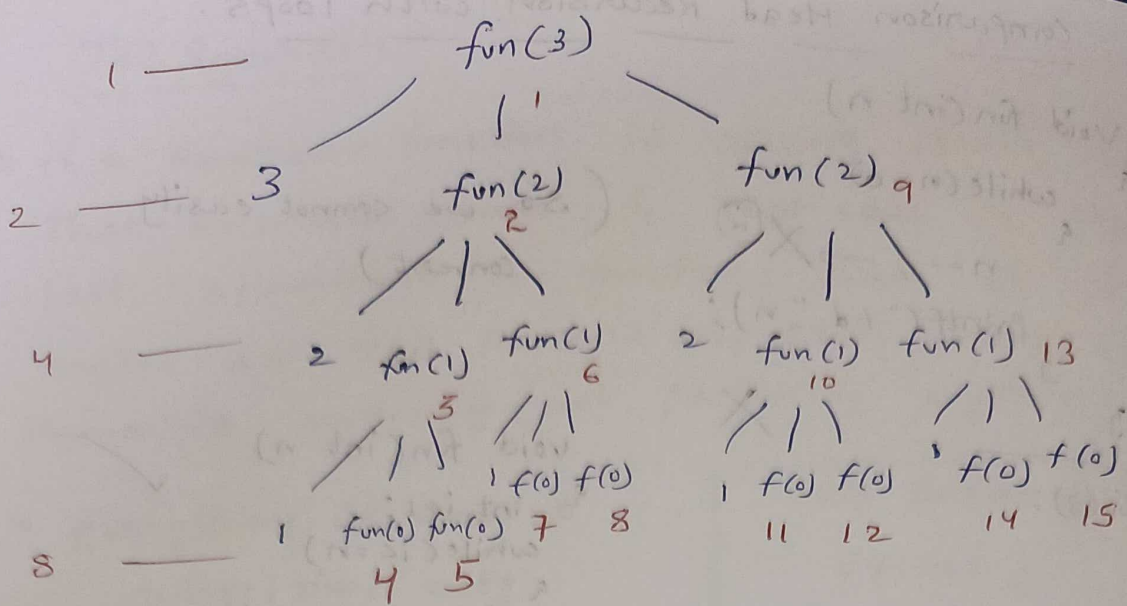 fun(3)
1
1
3 fun(2) fun(2) 9
2
2
4 2 fun(1) fun(1) 2 fun(1) fun(1) 13
3 6 10
1 f(0) f(0) 1 f(0) f(0) 1 f(0) f(0)
1 fun(0) fun(0) 7 8 11 12 14 15
8
4 5